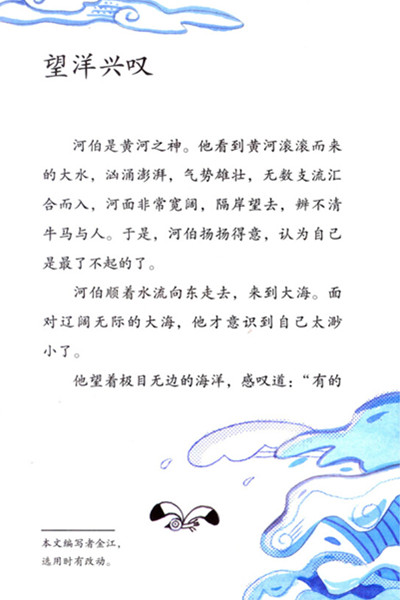 望洋兴叹
河伯是黄河之神。他看到黄河滚滚而来
的大水，汹涌澎湃，气势雄壮，无数支流汇
合而入，河面非常宽阔，隔岸望去，辨不清
牛马与人。于是，河伯扬扬得意，认为自己
是最了不起的了。
河伯顺着水流向东走去，来到大海。面
对辽阔无际的大海，他才意识到自己太渺
小了。
他望着极目无边的海洋，感叹道：“有的
本文编写者金江，
选用时有改动。